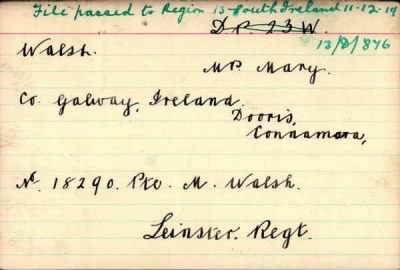 File passed to Region 13 South Ireland 11-12-19
DR 23 W.
13/D/876
Walsh.
Mrs Mary.
Co. Galway, Ireland.
Dooris,
Connamara,
No. 18290. Pte. M. Walsh.
Leinster. Regt.